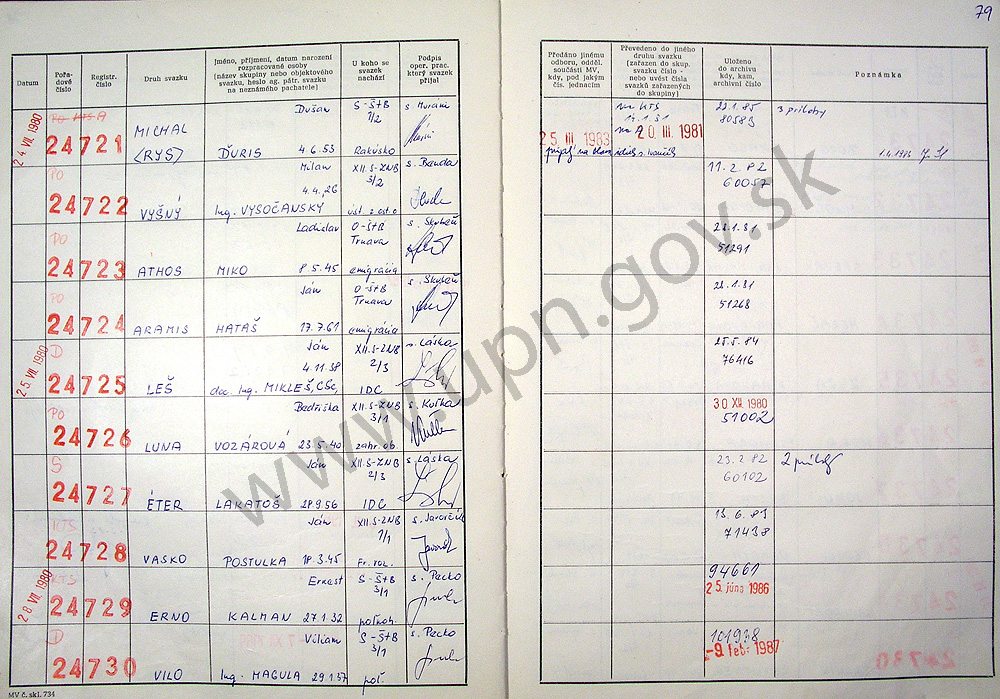 79
Datum
Pořa-
dové
číslo
Registr.
číslo
Druh svazku
Jméno, příjmení, datum narození
rozpracované osoby
(název skupiny nebo objektového
svazku, heslo ag. pátr. svazku
na neznámého pachatele)
U koho se
svazek
nachází
Podpis
oper. prac.
který svazek
přijal
Předáno jinému
odboru, odděl.
součásti MV,
kdy, pod jakým
čís. jednacím
Převedeno do jiného
druhu svazku
(zařazen do skup.
svazku číslo -
nebo uvést čísla
svazků zařazených
do skupiny)
Uloženo
do archívu
kdy, kam,
archívní číslo
Poznámka
24. VII. 1980
PO KTS A
24721
MICHAL
(RYS)
Dušan
ĎURIS 4.6.53
S-ŠtB
7/2
Rakúsko
s. Muráni
25. III. 1983
na KTS
na A 20. III. 1981
22.1.85
80583
3 prílohy
PO
24722
VYŠNÝ
Milan
4.4.26
Ing. VYSOČANSKY
XII.S-ZNB
3/2
s. Banda
11.2.82
60057
PO
24723
ATHOS
Ladislav
MIKO 8.5.45
O-ŠtB
Trnava
emigrácia
23.1.81
51291
PO
24724
ARAMIS
Ján
HATAŠ 17.7.61
O-ŠtB
Trnava
emigrácia
23.1.81
51268
25. VII. 1980
D
24725
LEŠ
Ján
4.11.38
doc. Ing. MIKLEŠ, CSc,
XII.S-ZNB
2/3
IDC
s. Láska
25.5.84
76416
PO
24726
LUNA
Bedřiška
VOZÁROVÁ 23.5.40
XII.S-ZNB
3/1
zahr. ob.
s. Kuťka
30. XII. 1980
51002
S
24727
ÉTER
Ján
LAKATOŠ 28.9.56
XII.S-ZNB
2/3
IDC
s. Láska
23.2.82
60102
2 prílohy
KTS
24728
VASKO
Ján
POSTULKA 18.3.45
XII.S-ZNB
1/1
Fr. roz.
13.6.83
71438
28. VII. 1980
KTS
24729
ERNO
Ernest
KALMAN 27.1.32
S-ŠtB
3/1
poľnoh.
s. Pecko
94661
25. júna 1986
D
24730
VILO
Viliam
Ing. MAGULA 29.1.37
S-ŠtB
3/1
poľ.
s. Pecko
101938
-9. febr. 1987
MV č. skl. 734
www.upn.gov.sk